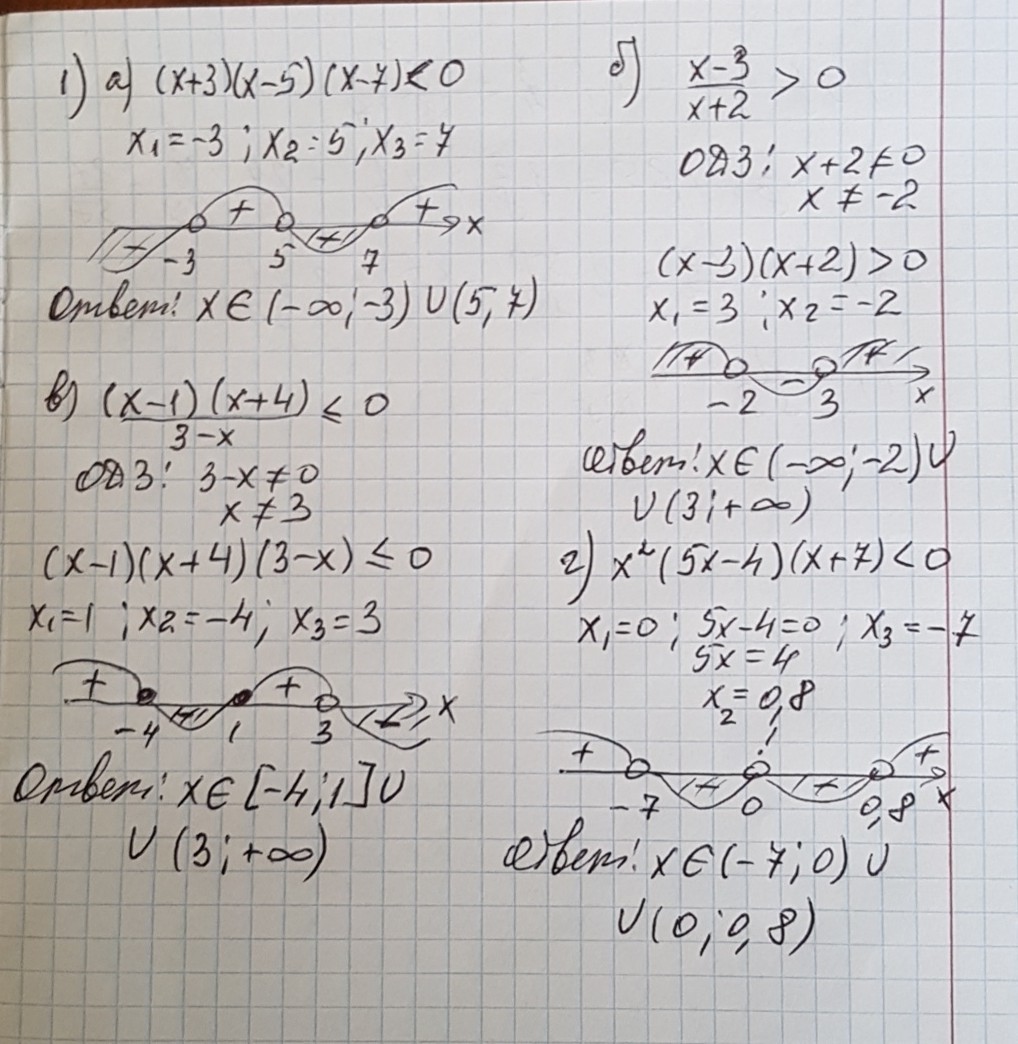 1) а) (x+3)(x-5)(x-7)<0
x₁=-3; x₂=5; x₃=7
- + - + x
-3 5 7
Ответ: x∈(-∞;-3)∪(5;7)
б) (x-3)/(x+2) > 0
ОДЗ: x+2≠0
x ≠ -2
(x-3)(x+2)>0
x₁=3; x₂=-2
+ - +
-2 3 x
Ответ: x∈(-∞;-2)∪
∪(3;+∞)
в) (x-1)(x+4)/(3-x) ≤ 0
ОДЗ: 3-x≠0
x≠3
(x-1)(x+4)(3-x)≤0
x₁=1; x₂=-4; x₃=3
+ - + - x
-4 1 3
Ответ: x∈[-4;1]∪
∪(3;+∞)
г) x²(5x-4)(x+7)<0
x₁=0; 5x-4=0; x₃=-7
5x=4
x₂=0,8
+ - - +
-7 0 0,8 x
Ответ: x∈(-7;0)∪
∪(0;0,8)